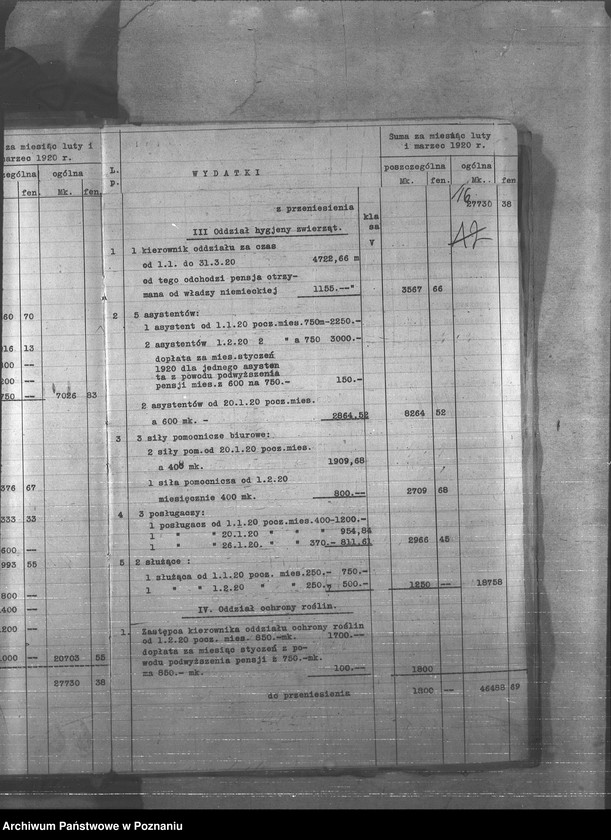 za miesiąc luty i
marzec 1920 r.
ogólna
fen. Mk. fen.
60 70
16 13
00 —
200 —
750 — 7026 83
376 67
333 33
600 —
993 55
800 —
400 —
200 —
000 — 20703 55
27730 38
Suma za miesiąc luty
i marzec 1920 r.
L.
p.
WYDATKI
poszczególna ogólna
Mk. fen. Mk. fen
16
z przeniesienia 27730 38
kla
sa
V
III Oddział hygjeny zwierząt.
1 1 kierownik oddziału za czas
od 1.1. do 31.3.20 4722,66 m
od tego odchodzi pensja otrzy-
mana od władzy niemieckiej 1155.--" 3567 66
2 5 asystentów:
1 asystent od 1.1.20 pocz.mies.750m-2250.-
2 asystentów 1.2.20 2 " a 750 3000.-
dopłata za mies.styczeń
1920 dla jednego asysten
ta z powodu podwyższenia
pensji mies.z 600 na 750.- 150.-
2 asystentów od 20.1.20 pocz.mies.
a 600 mk. - 2864.52 8264 52
3 3 siły pomocnicze biurowe:
2 siły pom.od 20.1.20 pocz.mies.
a 400 mk. 1909,68
1 siła pomocnicza od 1.2.20
miesięcznie 400 mk. 800.-- 2709 68
4 3 posługaczy:
1 posługacz od 1.1.20 pocz.mies.400-1200.-
1 " " 20.1.20 " " " 954,84
1 " " 26.1.20. " " 370.- 811.61 2966 45
5 2 służące :
1 służąca od 1.1.20 pocz. mies.250.- 750.-
1 " " 1.2.20 " " 250.- 500.- 1250 -- 18758
IV. Oddział ochrony roślin.
1. Zastępca kierownika oddziału ochrony roślin
od 1.2.20 pocz. mies. 850.-mk. 1700.--
dopłata za miesiąc styczeń z po-
wodu podwyższenia pensji z 750.-mk.
na 850.- mk. 100.-- 1800
do przeniesienia 1800 -- 46488 69
Archiwum Państwowe w Poznaniu